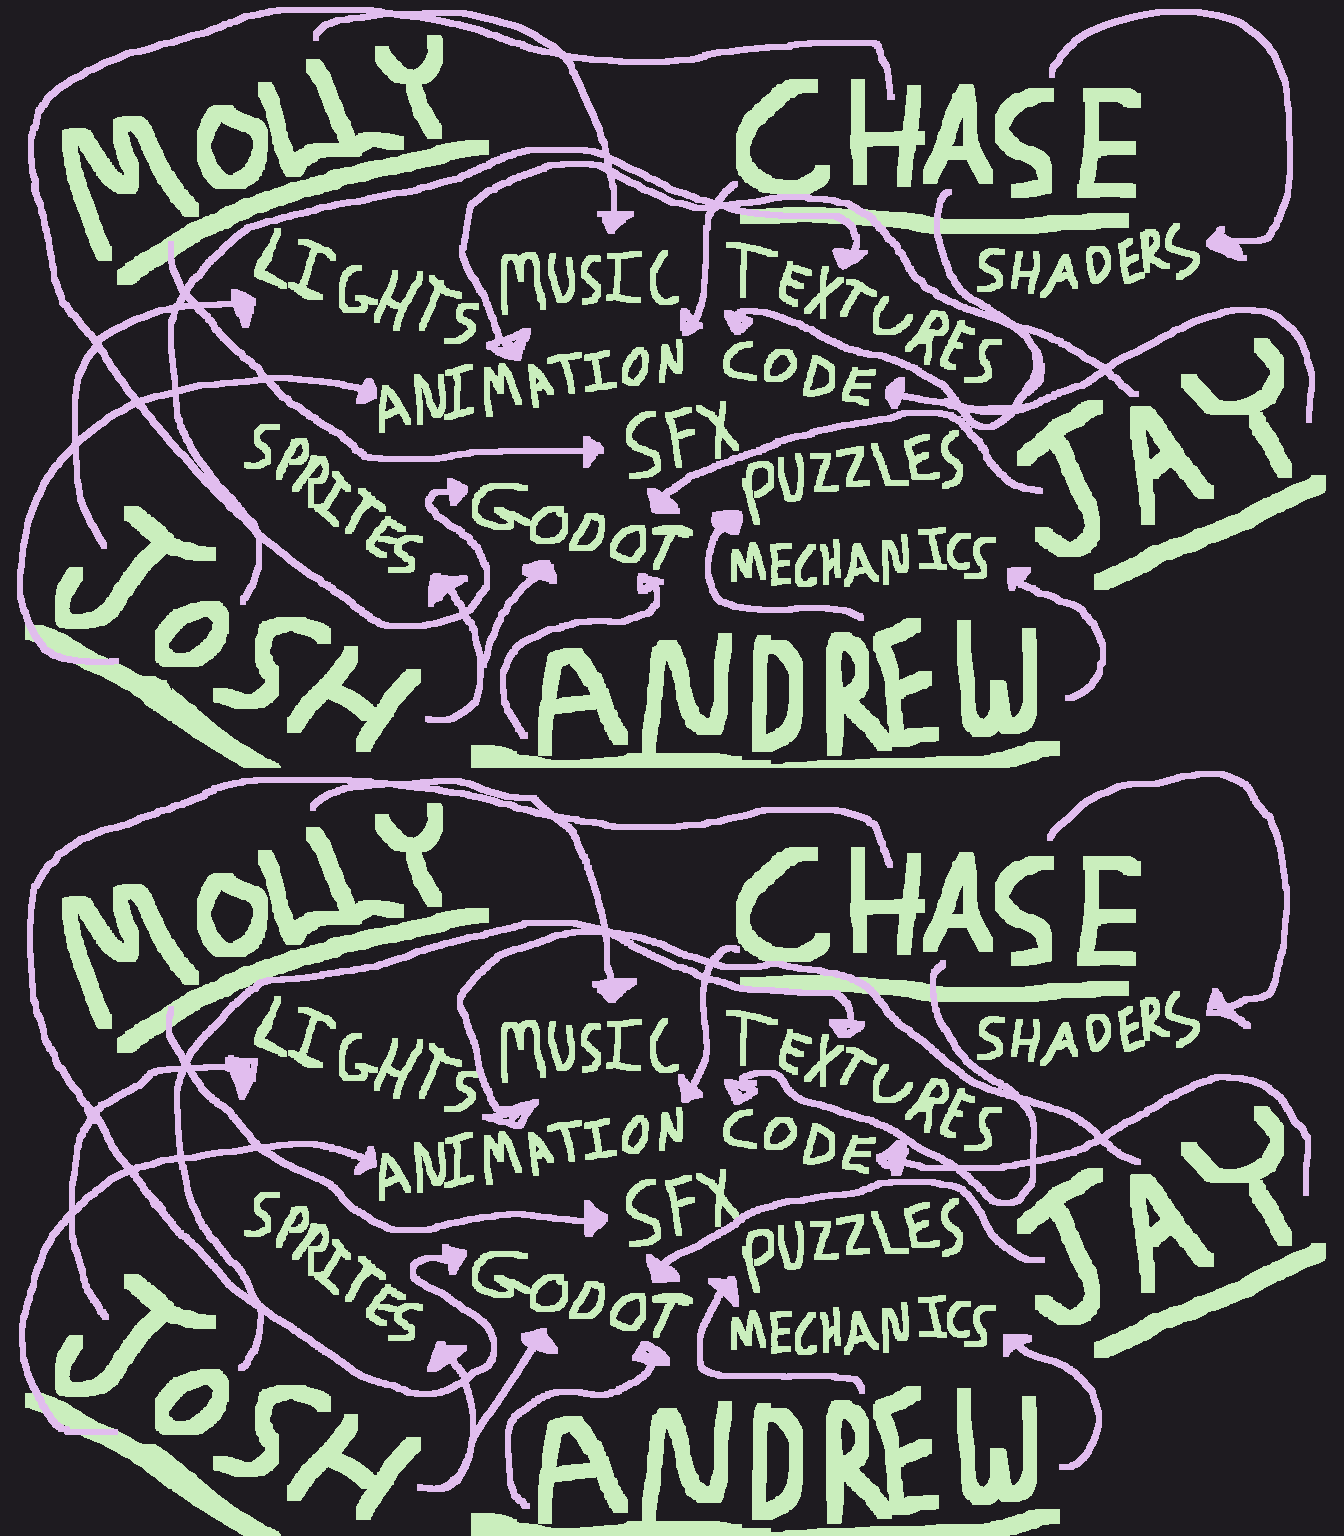 MOLLY
CHASE
LIGHTS
MUSIC
TEXTURES
SHADERS
ANIMATION
CODE
JAY
SPRITES
SFX
PUZZLES
GODOT
MECHANICS
JOSH
ANDREW
MOLLY
CHASE
LIGHTS
MUSIC
TEXTURES
SHADERS
ANIMATION
CODE
JAY
SPRITES
SFX
PUZZLES
GODOT
MECHANICS
JOSH
ANDREW